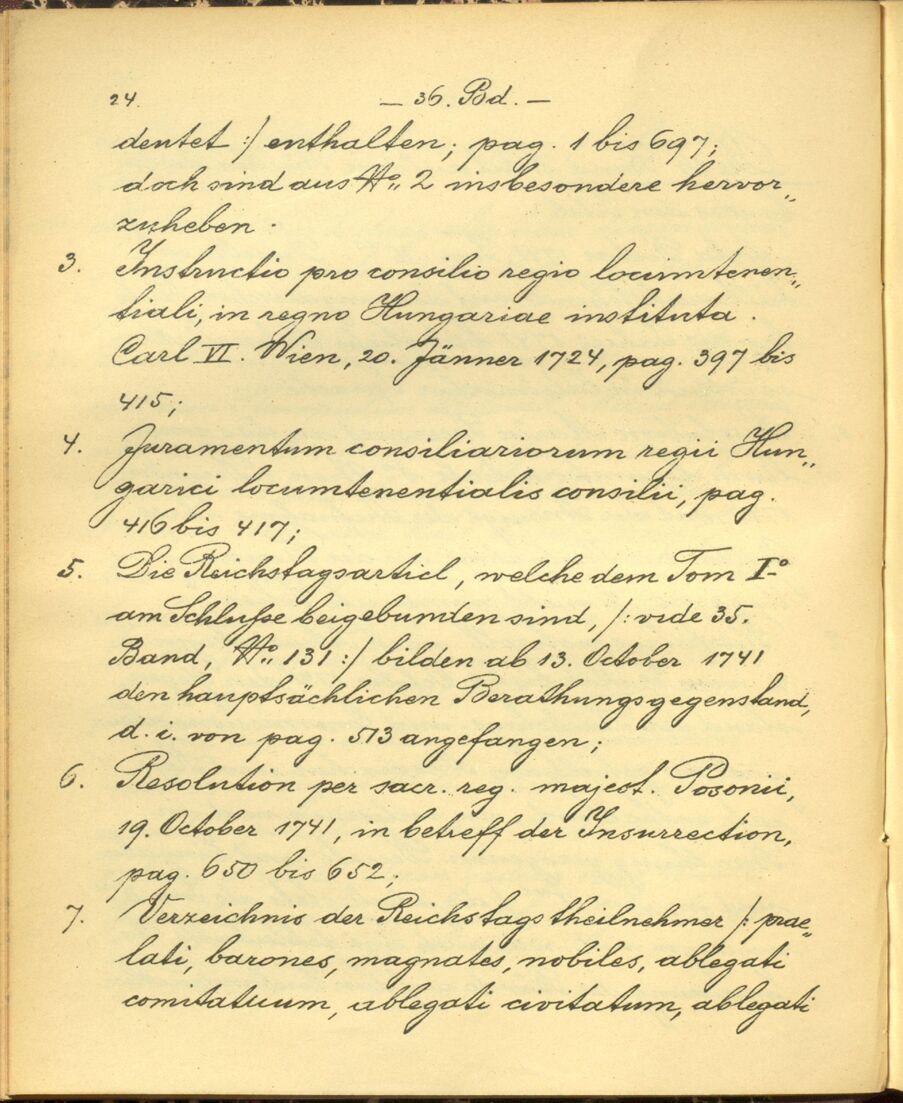 24.
— 36. Bd. —
dentet :/ enthalten; pag. 1 bis 697;
doch sind aus No. 2 insbesondere hervor„
zuheben.
3. Instructio pro consilio regio locumtenen„
tiali, in regno Hungariae instituta.
Carl VI. Wien, 20. Jänner 1724, pag. 397 bis
415;
4. Juramentum consiliariorum regii Hun„
garici locumtenentialis consilii, pag.
416 bis 417;
5. Die Reichstagsarticl, welche dem Tom I-o
am Schluße beigebunden sind, /: vide 35.
Band, No. 131 :/ bilden ab 13. October 1741
den hauptsächlichen Berathungsgegenstand,
d. i. von pag. 513 angefangen;
6. Resolution per sacr. reg. majest. Posonii,
19. October 1741, in betreff der Insurrection,
pag. 650 bis 652;
7. Verzeichnis der Reichstagstheilnehmer /: prae„
lati, barones, magnates, nobiles, ablegati
comitatuum, ablegati civitatum, ablegati